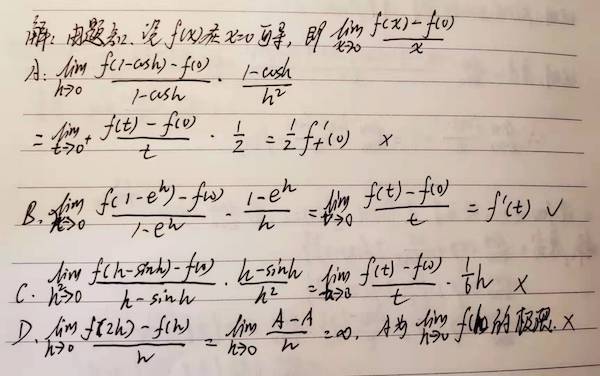 解: 由题知. 设 f(x) 在 x=0 可导, 即 lim_{x→0} (f(x)-f(0))/x
A: lim_{h→0} (f(1-cosh)-f(0))/(1-cosh) · (1-cosh)/h²
= lim_{t→0⁺} (f(t)-f(0))/t · 1/2 = 1/2 f₊'(0) ×
B. lim_{h→0} (f(1-e^h)-f(0))/(1-e^h) · (1-e^h)/h = lim_{t→0} (f(t)-f(0))/t = f'(t) ✓
C. lim_{h→0} (f(h-sinh)-f(0))/(h-sinh) · (h-sinh)/h² = lim (f(t)-f(0))/t · 1/6 h ×
D. lim_{h→0} (f(2h)-f(h))/h = lim_{h→0} (A-A)/h = ∞. A为 lim_{h→0} f(h) 的极限. ×